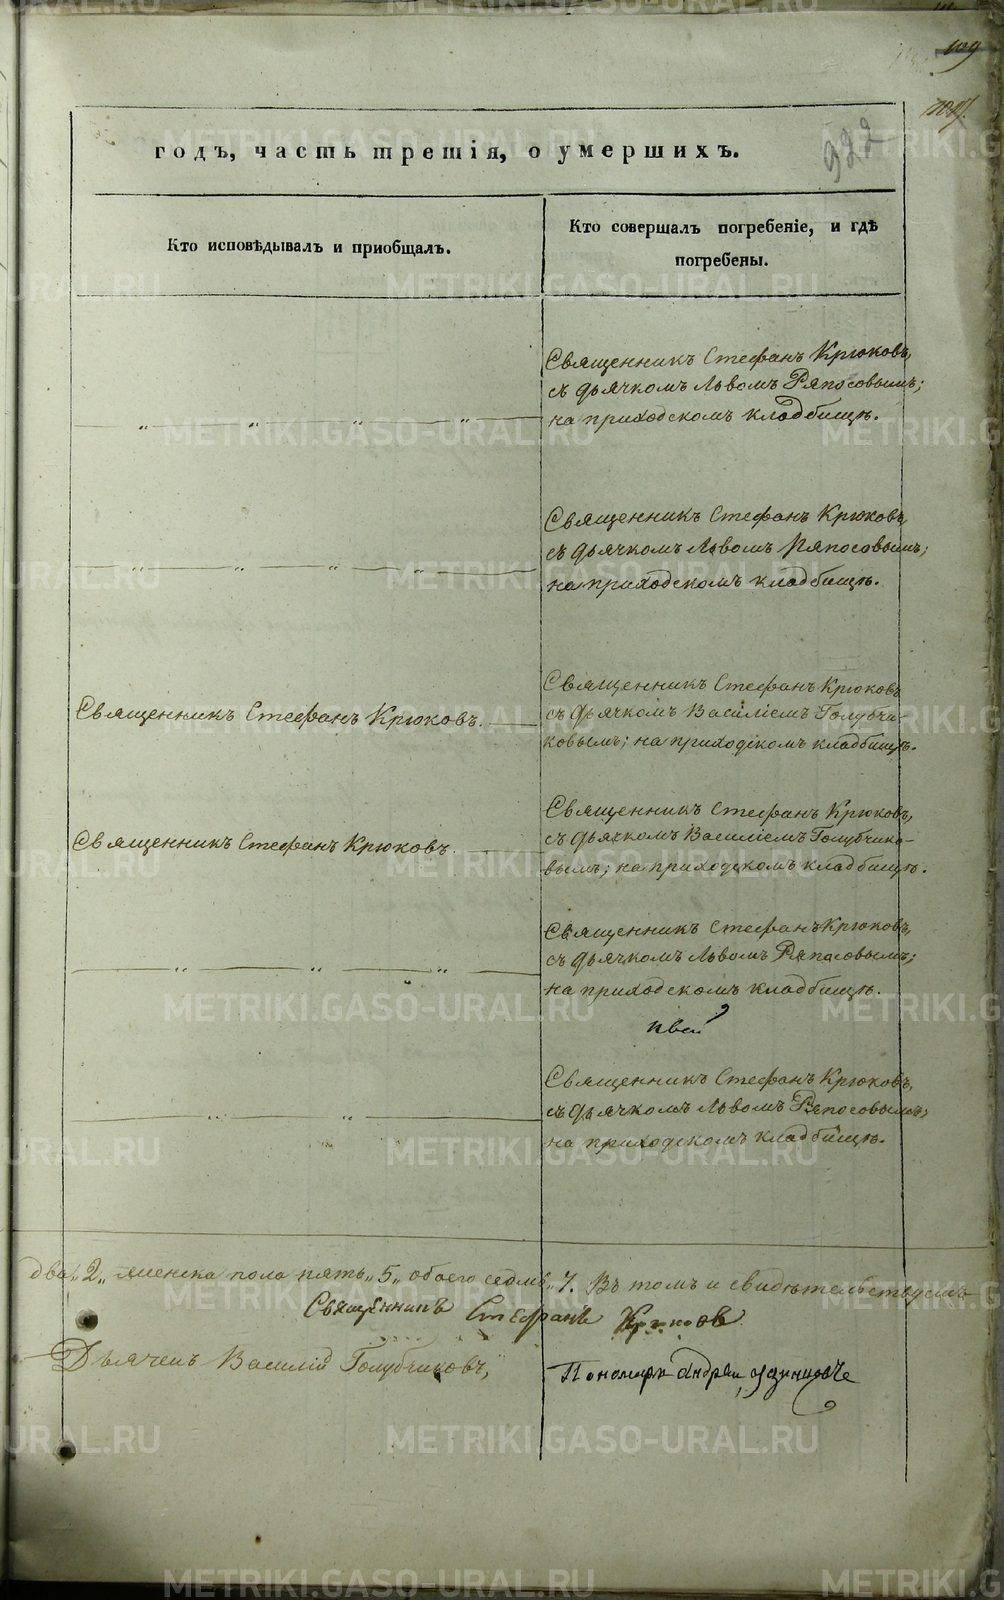 109
годъ, часть третія, о умершихъ.
922
Кто исповѣдывалъ и пріобщалъ.
Кто совершалъ погребеніе, и гдѣ
погребены.
Священникъ Стефанъ Крюковъ,
съ дьячкомъ Львомъ Ряпосовымъ;
на приходскомъ кладбищѣ.
Священникъ Стефанъ Крюковъ
съ дьячкомъ Львомъ Ряпосовымъ;
на приходскомъ кладбищѣ.
Священникъ Стефанъ Крюковъ.
Священникъ Стефанъ Крюковъ
съ дьячкомъ Василіемъ Голубчи-
ковымъ; на приходскомъ кладбищѣ.
Священникъ Стефанъ Крюковъ.
Священникъ Стефанъ Крюковъ,
съ дьячкомъ Василіемъ Голубчико-
вымъ; на приходскомъ кладбищѣ.
Священникъ Стефанъ Крюковъ,
съ дьячкомъ Львомъ Ряпосовымъ;
на приходскомъ кладбищѣ.
Священникъ Стефанъ Крюковъ,
съ дьячкомъ Львомъ Ряпосовымъ;
на приходскомъ кладбищѣ.
два „2„ женска пола пять „5„ обоего седмь „7. Въ томъ и свидѣтельствуемъ
Священникъ Стефанъ Крюковъ
Дьячекъ Василій Голубчиковъ,
Пономарь Андрей
METRIKI.GASO-URAL.RU